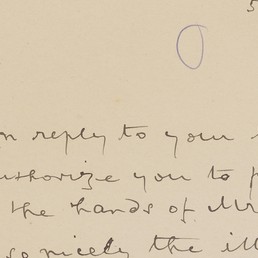 5
n reply to your
uthorize you to p
the hands of Mr
so nicely the ill